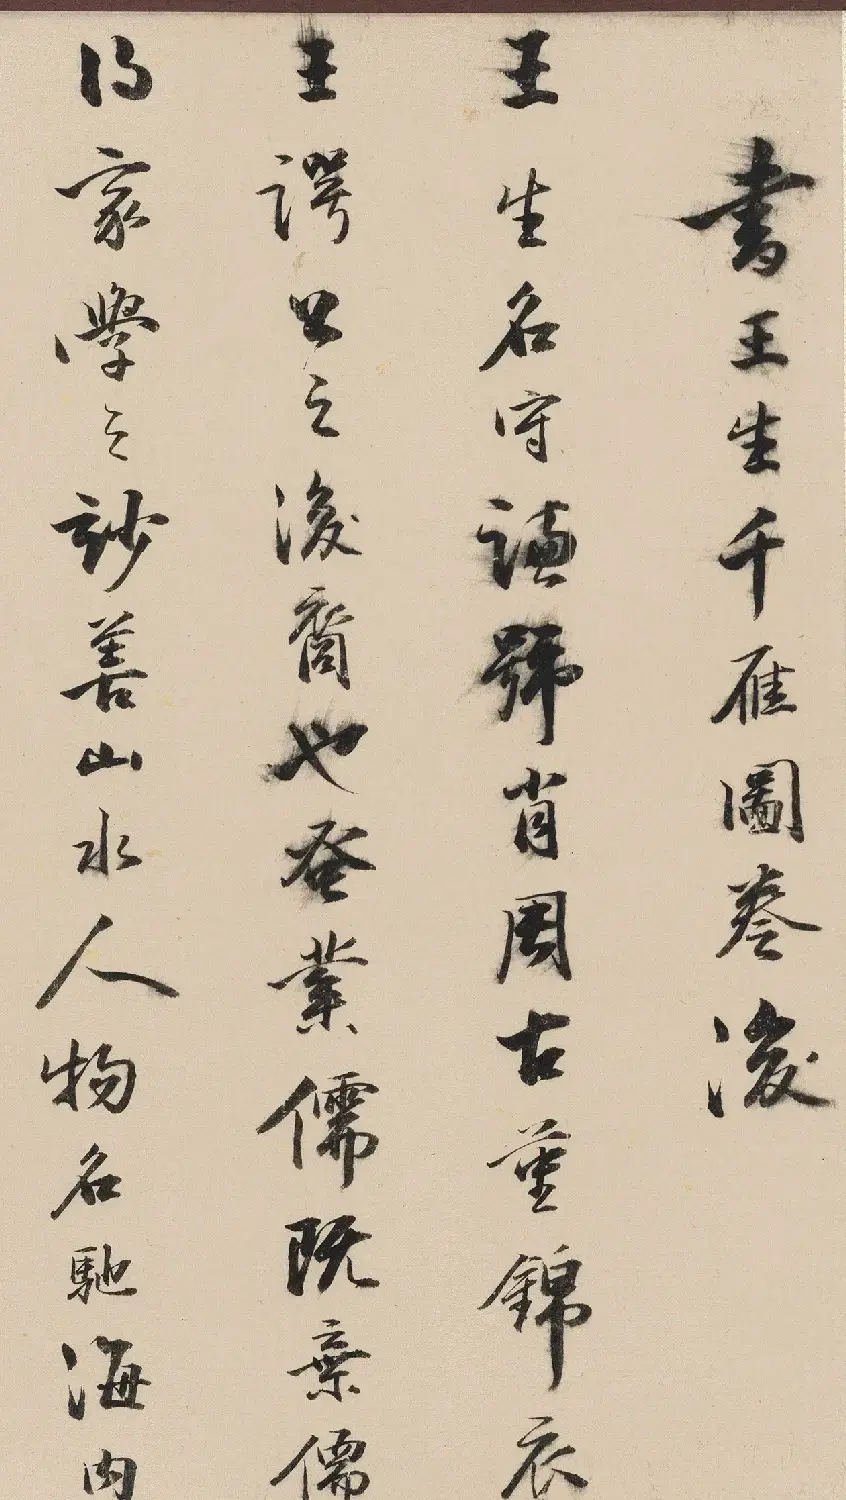 書王生千雁圖卷後
王生名守謙號肖周古董錦衣
王諤公之後裔也蚤業儒既棄儒
得家學之妙善山水人物名馳海內